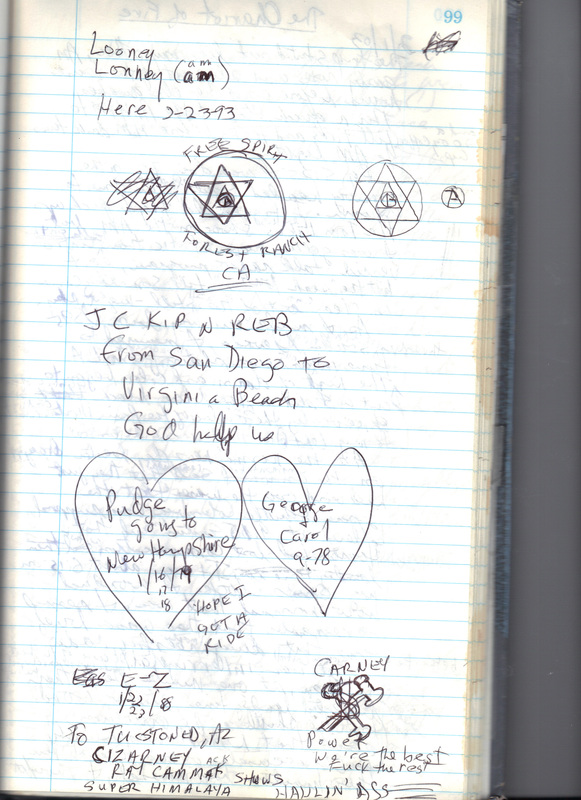 99
Looney
Lonney (am)
am
Here 2-23-93
FREE SPIRIT
A
FOREST RANCH
CA
B
A
J C KIP N REB
From San Diego to
Virginia Beach
God help us
Pudge
going to
New Hampshire
1/16/79
17
18
HOPE I
GOT A
RIDE
George
&
Carol
9-78
E-Z
1/22/88
23
To TUCSTONED, AZ
CIZARNEY
ASK
RAY CAMMAT SHOWS
SUPER HIMALAYA
CARNEY
Power
We're the best
Fuck the rest
HAULIN' ASS